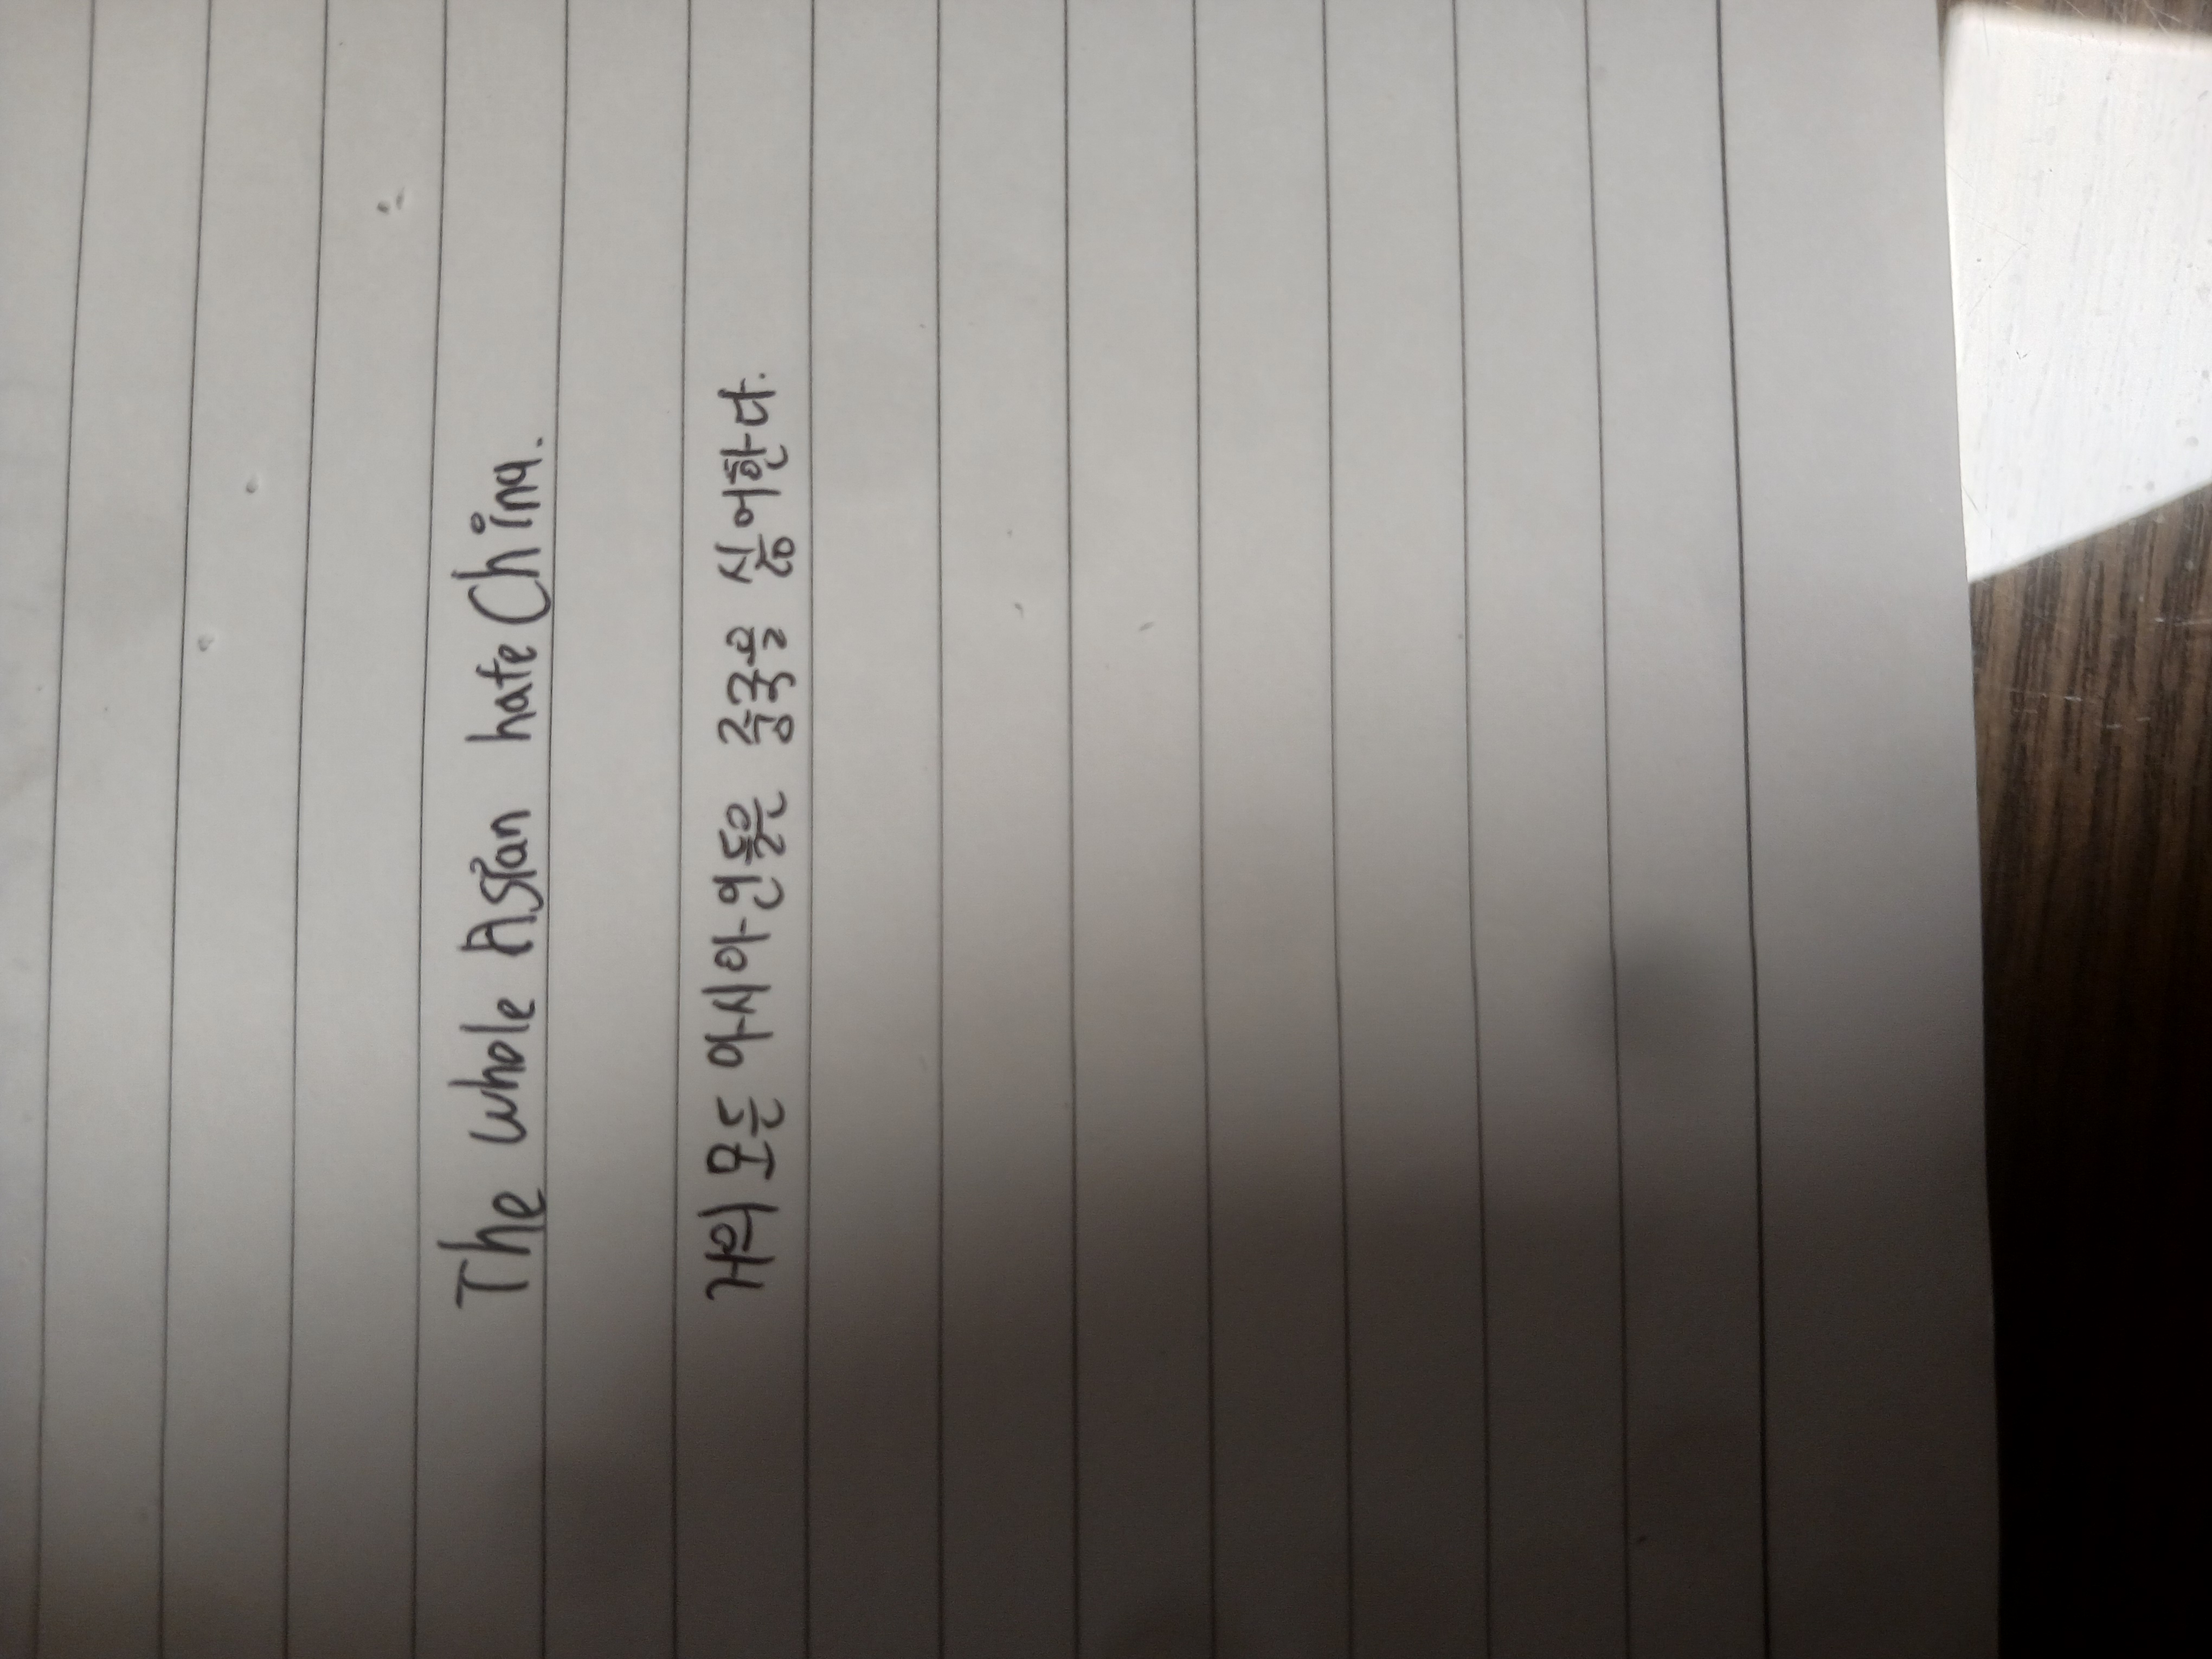 The whole Asian hate China.
거의 모든 아시아인들은 중국을 싫어한다.